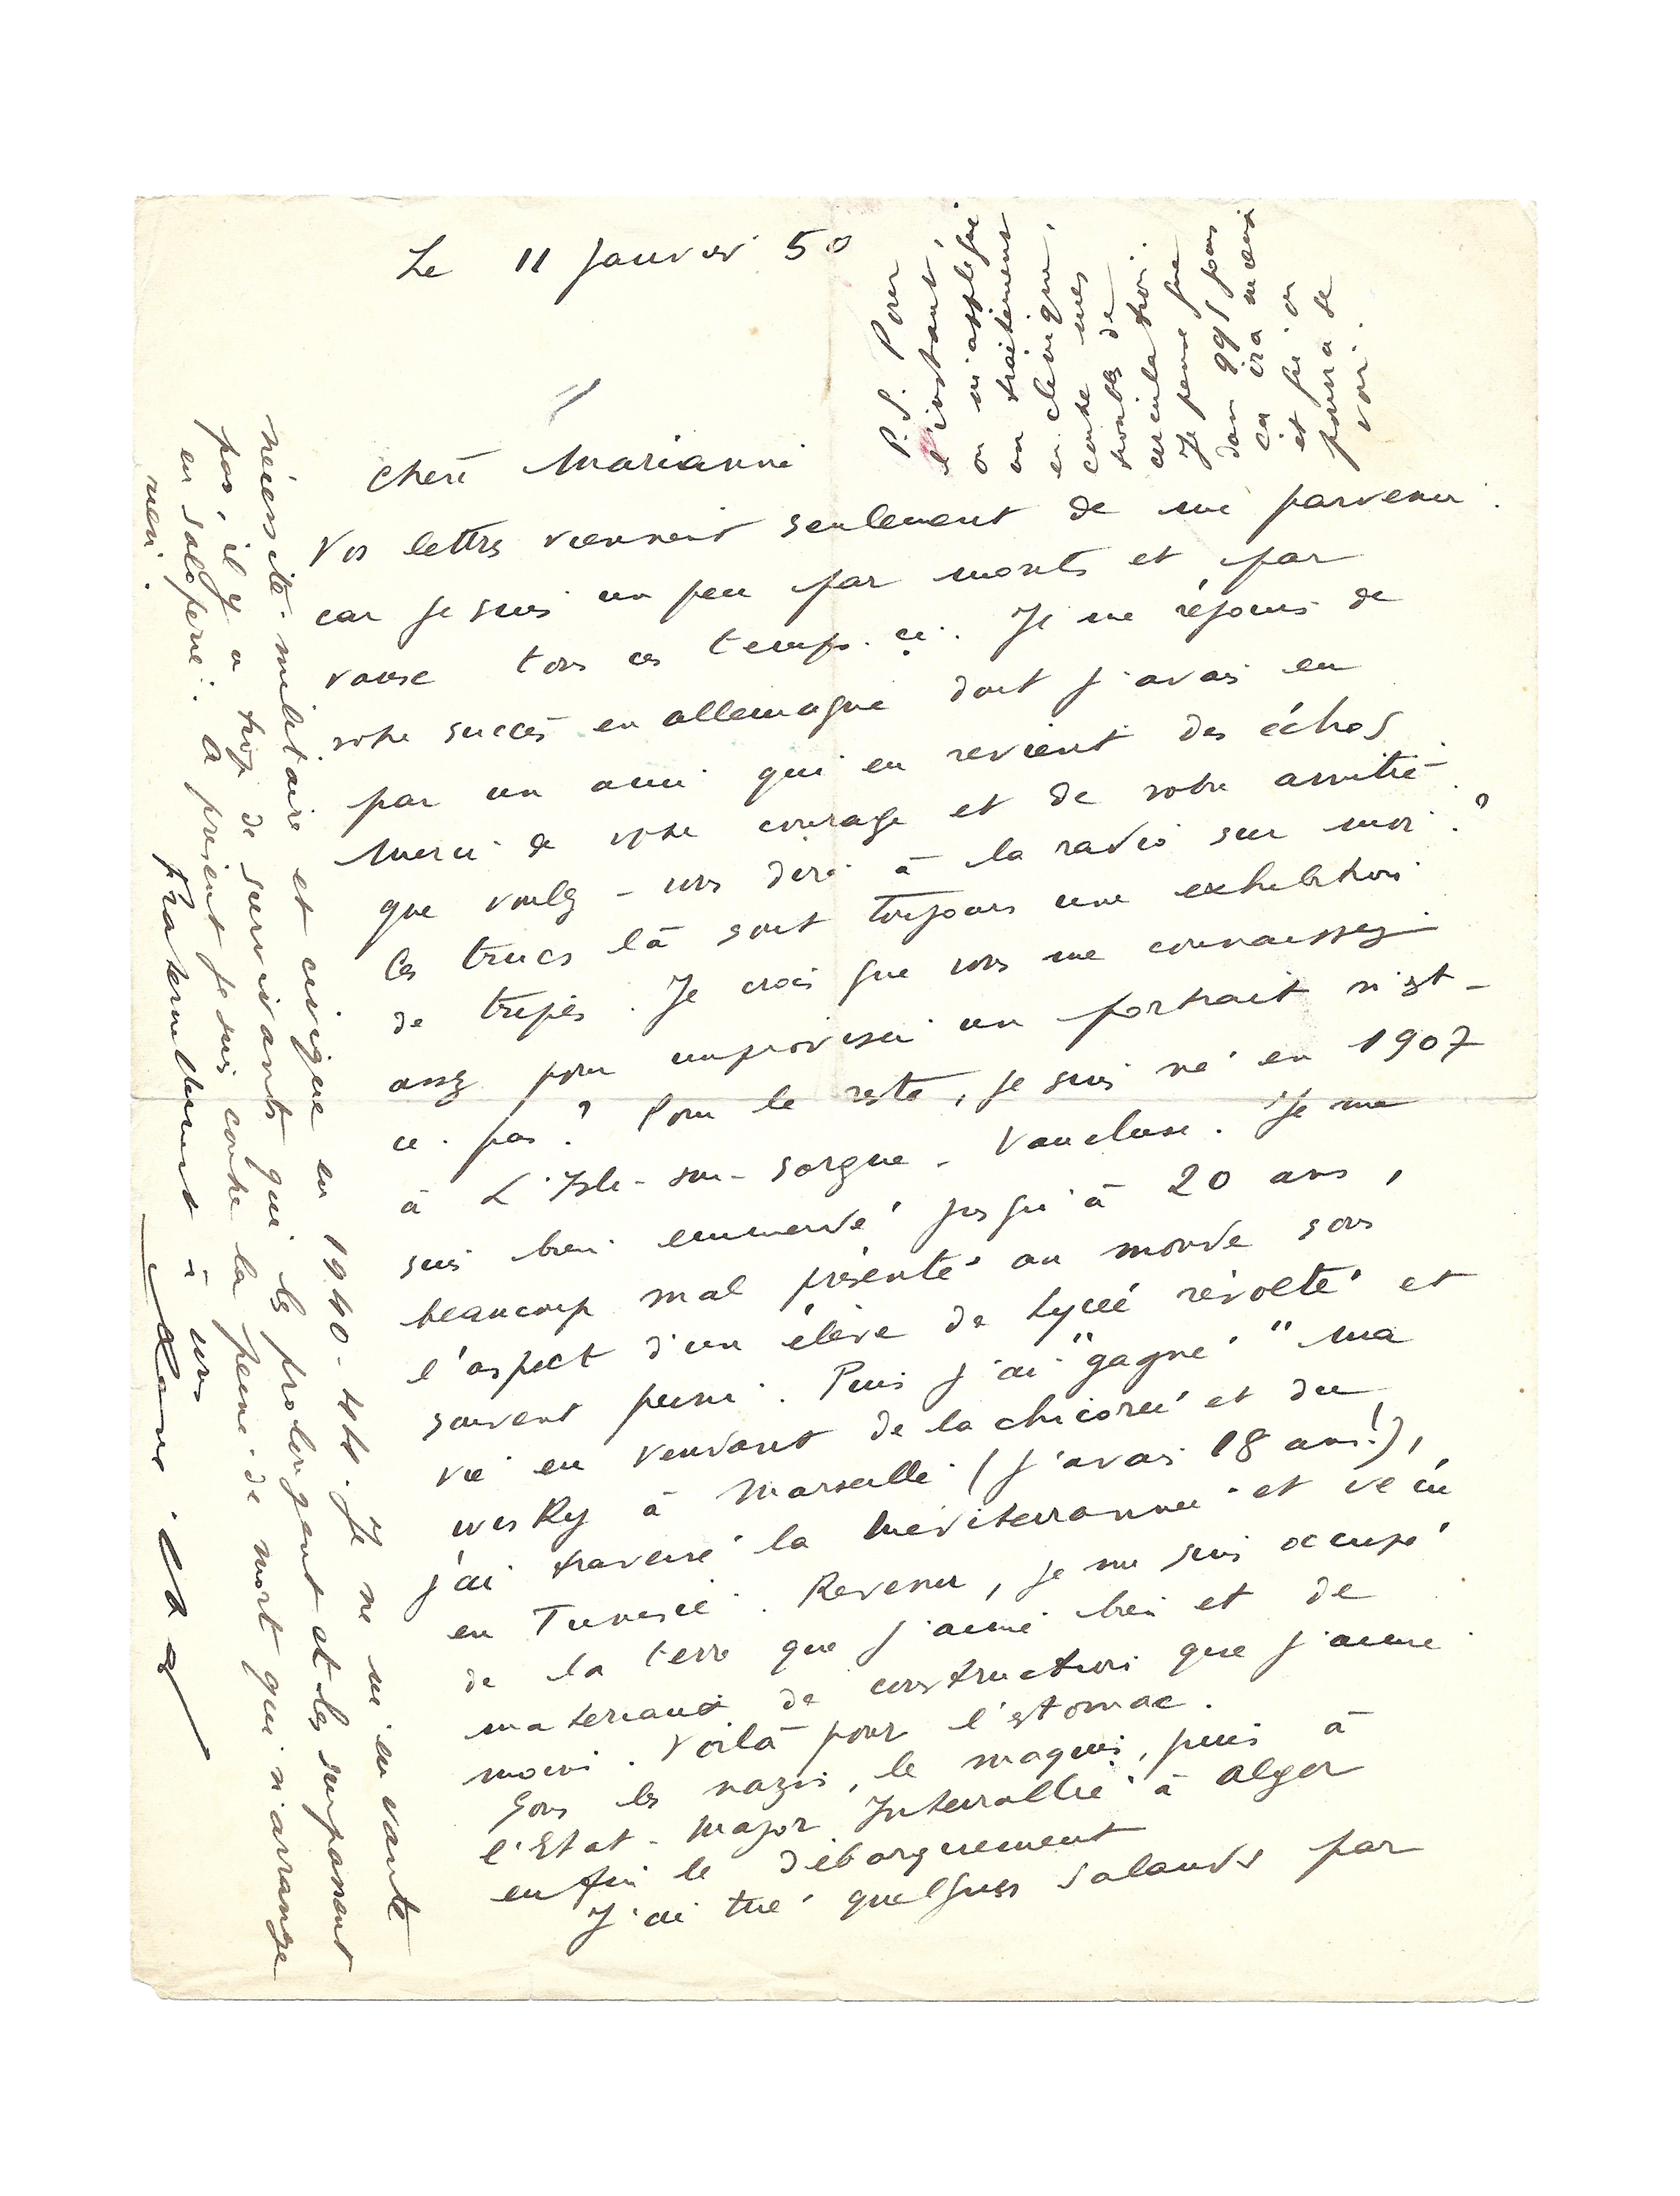 Le 11 Janvier 50
chère Marianne
Vos lettres viennent seulement de me parvenir.
car je suis un peu par monts et par
vaux tous ces temps-ci. Je me réjouis de
votre succès en allemagne dont j'avais eu
par un ami qui en revient des échos
Merci de votre courage et de votre amitié.
que voulez-vous dire à la radio sur moi ?
Ces trucs là sont toujours une exhibition
de tripes. Je crois que vous me connaissez
assez pour improviser un portrait n'est-
ce-pas ? Pour le reste, je suis né en 1907
à L'Isle-sur-Sorgue - Vaucluse. Je me
suis bien emmerdé jusqu'à 20 ans,
beaucoup mal présenté au monde sous
l'aspect d'un élève de Lycée révolté et
souvent puni. Puis j'ai "gagné" ma
vie en vendant de la chicorée et du
wisky à Marseille (j'avais 18 ans!),
j'ai traversé la Méditerrannée et vécu
en Tunisie. Revenu, je me suis occupé
de la terre que j'aime bien et de
materiaux de construction que j'aime
moins. Voilà pour l'estomac.
Sous les nazis, le maquis, puis à
l'Etat-Major Interallié à Alger
enfin le débarquement
J'ai tué quelques salauds par
nécessité militaire et civique en 1940-44. Je ne m'en vante
pas, il y a trop de survivants qui les prolongent et les surpassent
en saloperie. A présent je suis contre la peine de mort qui n'arrange
rien.
Fraternellement à vous
René Char
P.S. Pour
l'instant,
on m'applique
un traitement
en clinique,
contre mes
troubles de
circulation.
Je pense que
dans qqs jours
ça ira mieux
et qu'on
pourra se
voir.